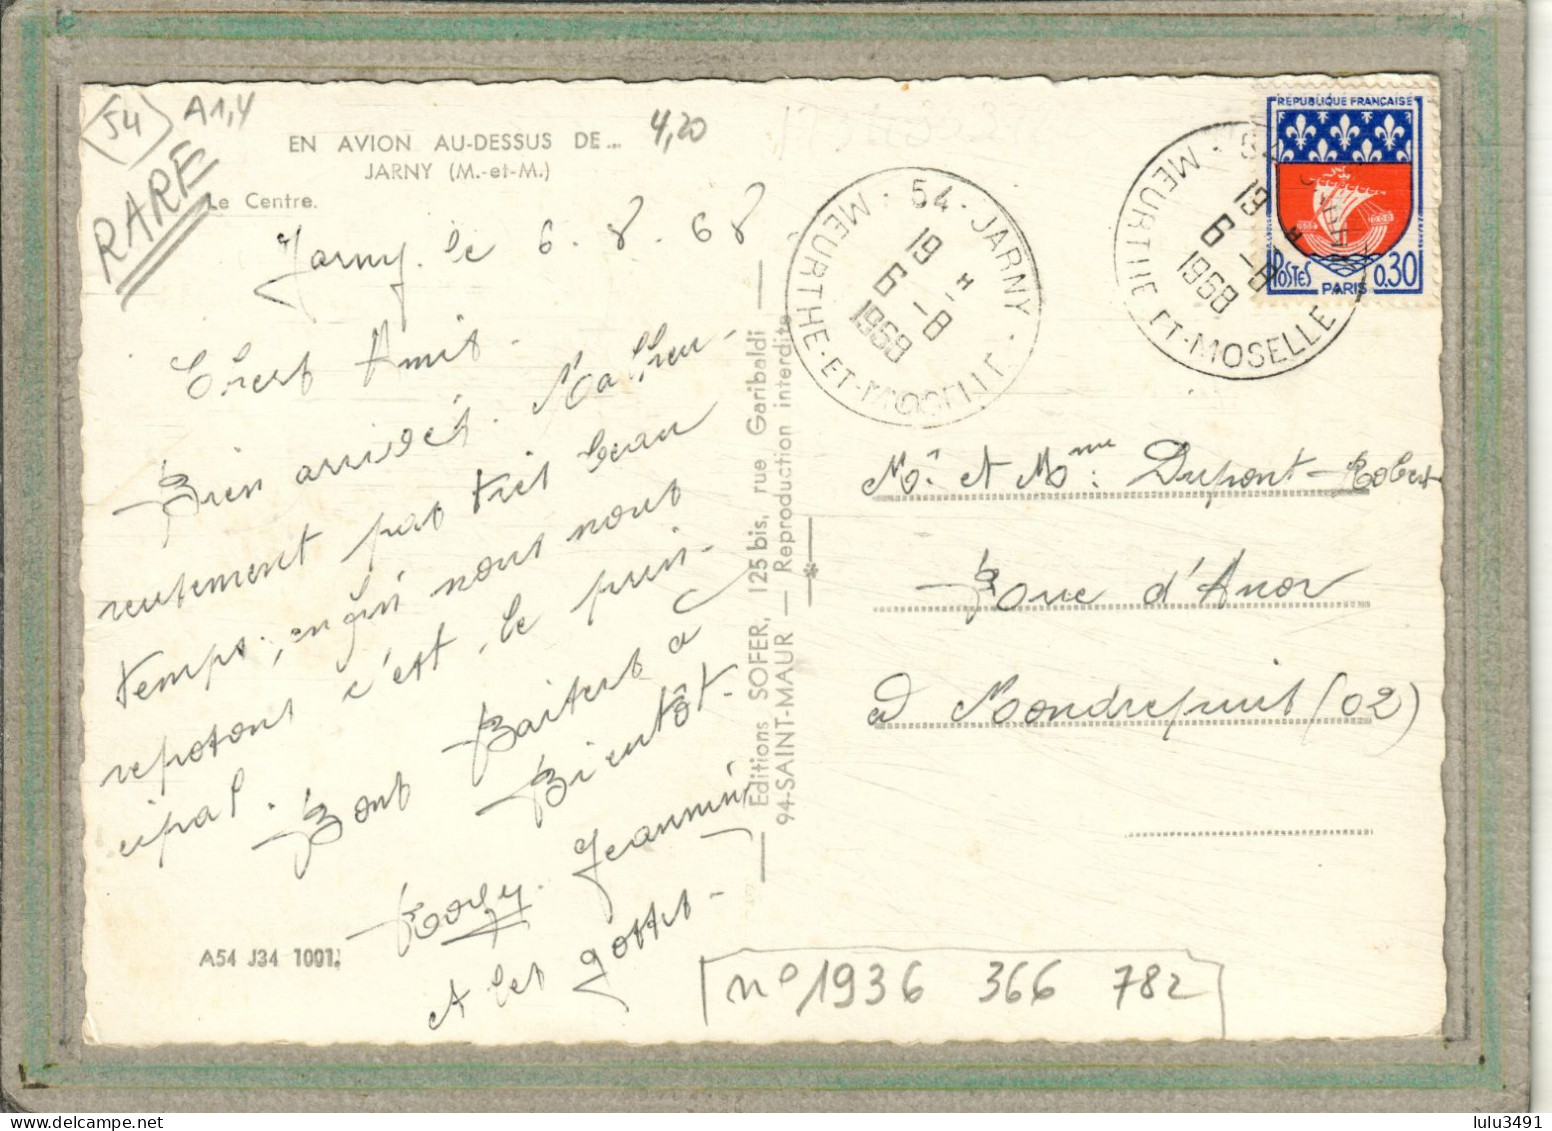 54
A1,4
RARE
EN AVION AU-DESSUS DE...
4,20
JARNY (M.-et-M.)
Le Centre.
Jarny. le 6. 8. 68
Chers Amis.
Bien arrivés. Malheu-
reusement pas très beau
temps, enfin nous nous
reposons c'est le prin-
cipal. Bons Baisers à
Bientôt.
Jeannine
A les gosses.
A54 J34 1001
Editions SOFER, 125 bis, rue Garibaldi
94-SAINT-MAUR — Reproduction interdite
54-JARNY
19 H
6 -8
1968
MEURTHE-ET-MOSELLE
19 H
6 -8
1968
MEURTHE ET-MOSELLE
RÉPUBLIQUE FRANÇAISE
POSTES PARIS 0,30
Mr et Mme: Dupont-Robert
Rue d'Anor
à Mondrepuis (02)
n° 1936 366 782
lulu3491